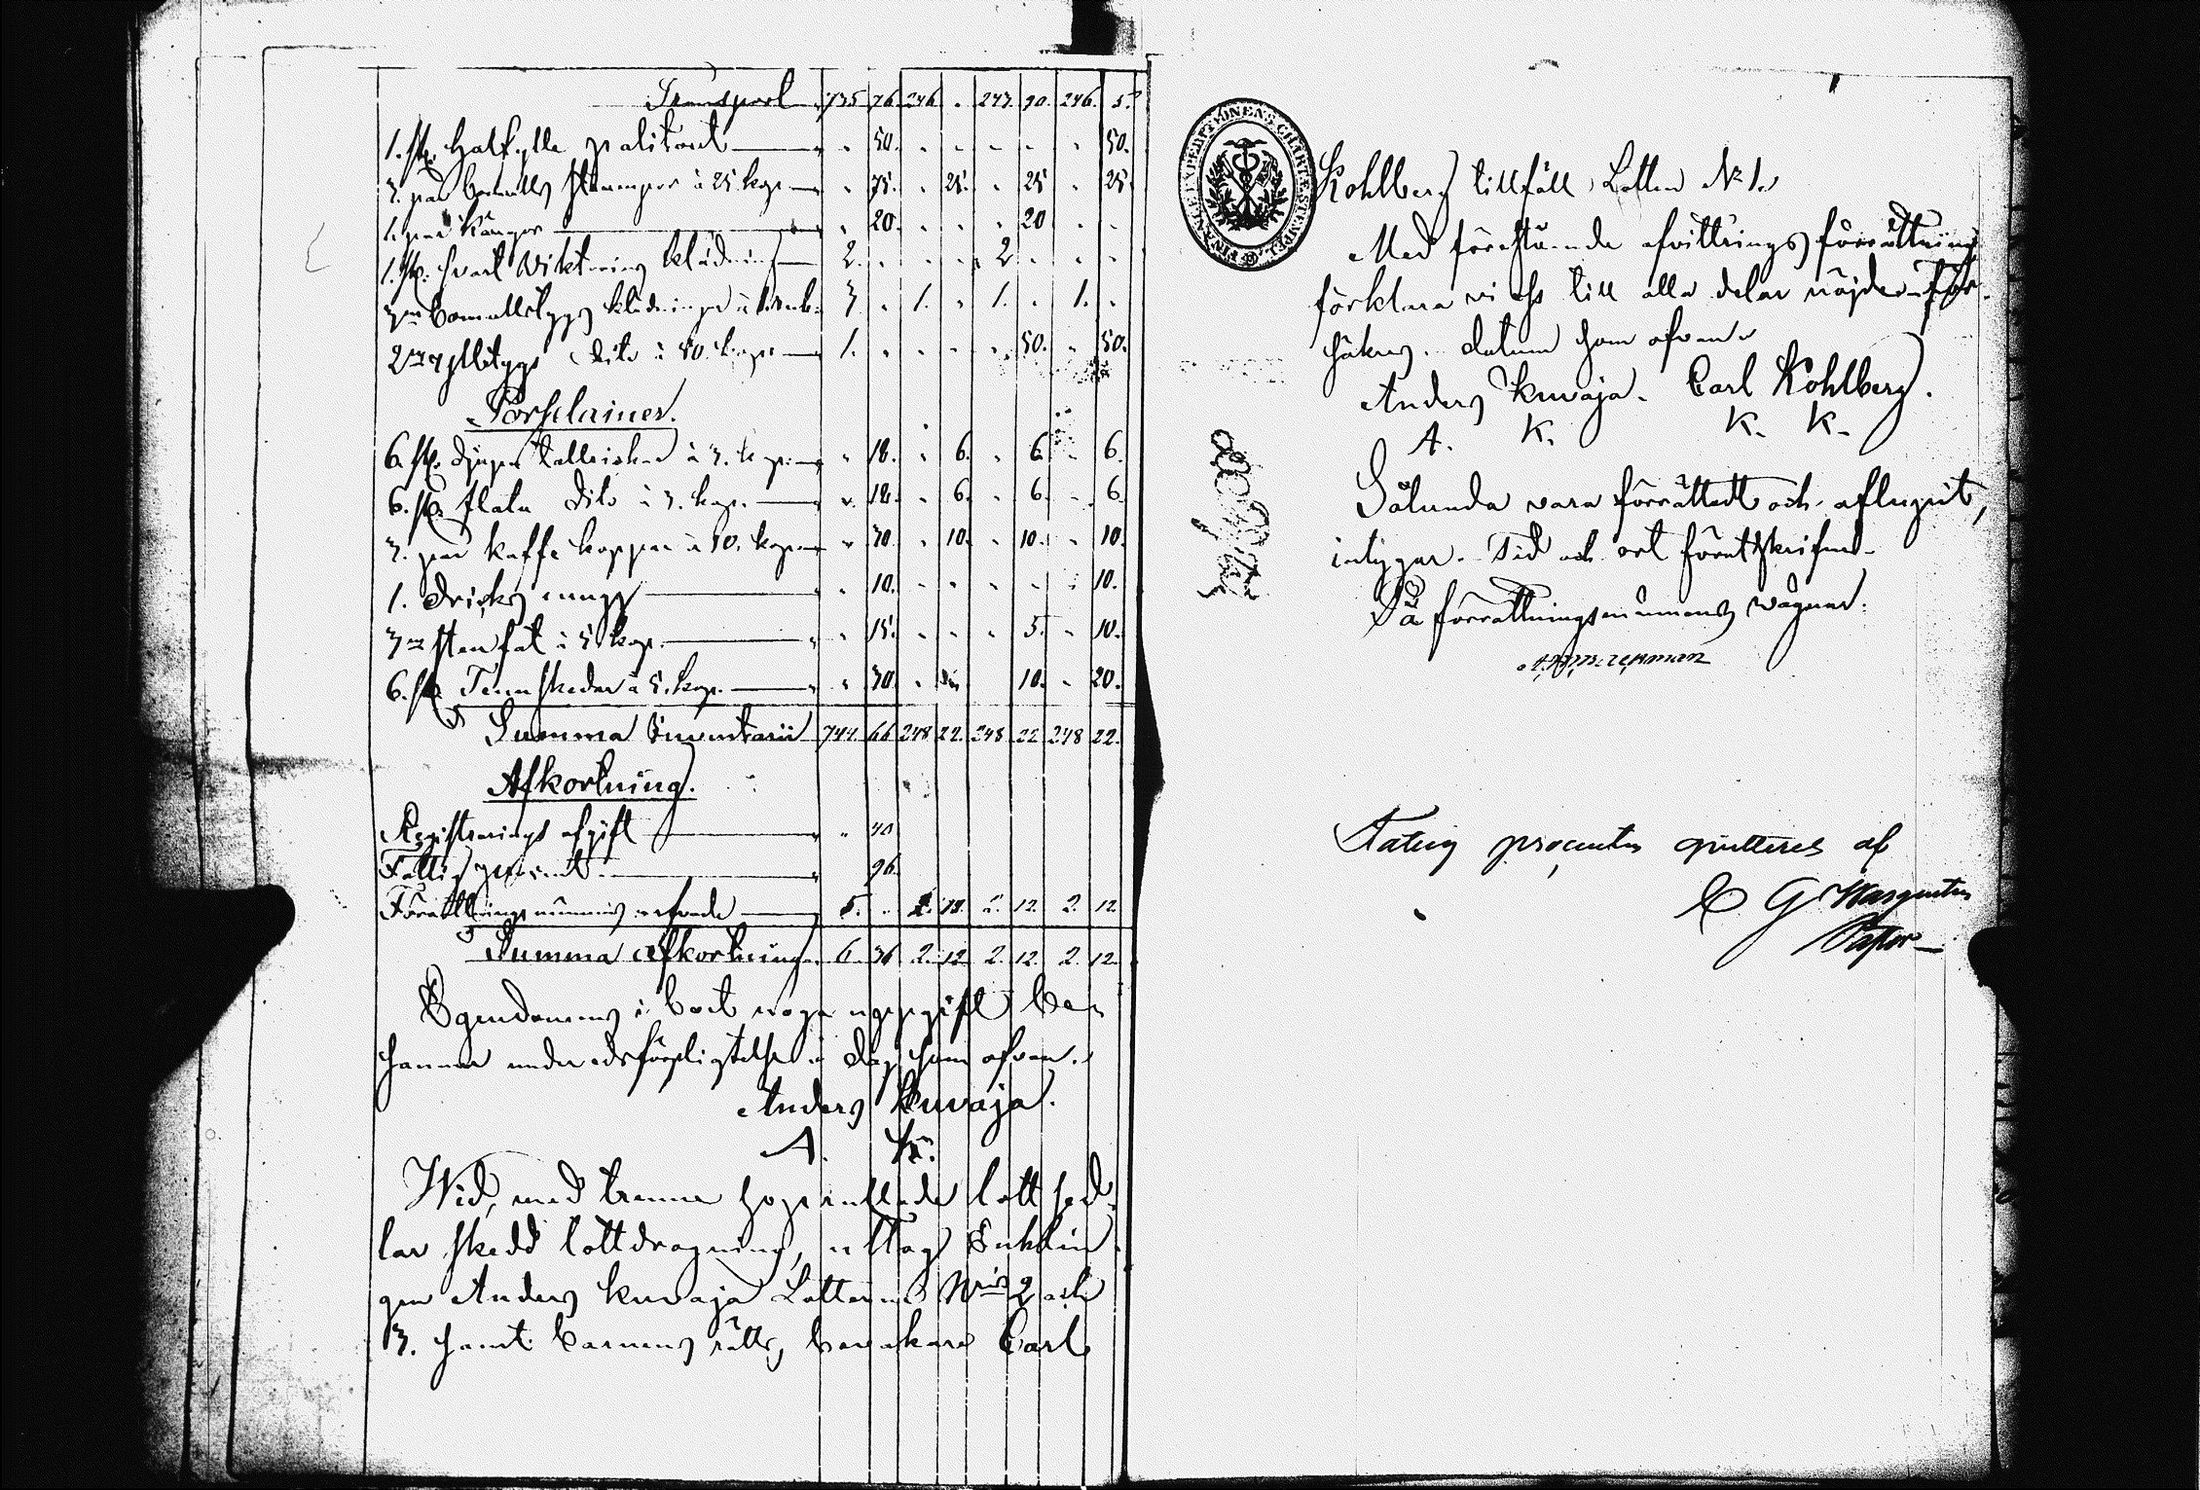 Transport 735 76 246 . 247. 90. 246. 5.
1. st. Halfylle palitout " 50. . . . . . 50.
3. par bomulls strumpor à 25 kop. " 75. . 25. . 25 . 25.
1. par kängor " 20. . . . 20 . .
1. st. svart Wiktorins klädning 2. . . . 2 . . .
3ne Bomullstygs klädningar à 1. rub. 3 . 1. . 1. . 1. .
2ne ylletygs dito à 50. kop. 1. . . . . 50. . 50.
Porslainer.
6. st. djupa talleickar à 3. kop. " 18. . 6. . 6. . 6.
6. st. flata dito à 3. kop. " 18. . 6. . 6. . 6
3. par kaffe koppar à 10. kop. " 30. . 10. . 10. . 10.
1. dricks mugg " 10. . . . . . 10.
3ne stenfat à 5 kop. " 15. . . . 5. . 10.
6. st. Tennskedar à 5. kop. " 30. . 10. . 20.
Summa Inventarii 744. 66 248 22. 248 22 248 22.
Afkortning.
Registrerings afgift " 40
Fattig procent " 96.
Förrättningsmännens arfvode 5. " 2. 12. 2. 12. 2. 12
Summa Afkortning 6. 36 2. 12 2. 12. 2. 12.
Egendomens i bort uppgift be-
hanna under edsförpligtelse dag som ofvan.
Anders Kuvaja.
A. K.
Wid, med trenne hoprullade lottsed-
lar skedd lottdragning, uttog Enklin-
gen Anders Kuvaja Lotterne Nris 2 och
3. samt Barnens rätts bevakare Carl
FINANCE EXPEDITIONENS CHARTÆ STEMPEL
Kohlberg tillföll Lotten No 1.
Med förestående afvittrings förrättning
förklara vi oss till alla delar nöjde för-
säkras. datum som ofvan.
Anders Kuvaja. Carl Kohlberg.
A. K. K. K.
Sålunda vara förrättadt och aflupit,
intygar. Tid och ort förutskrifne.
På förrättningsmännens vägnar.
Fattig procenten quitteres af
C G Wargentin
Pastor